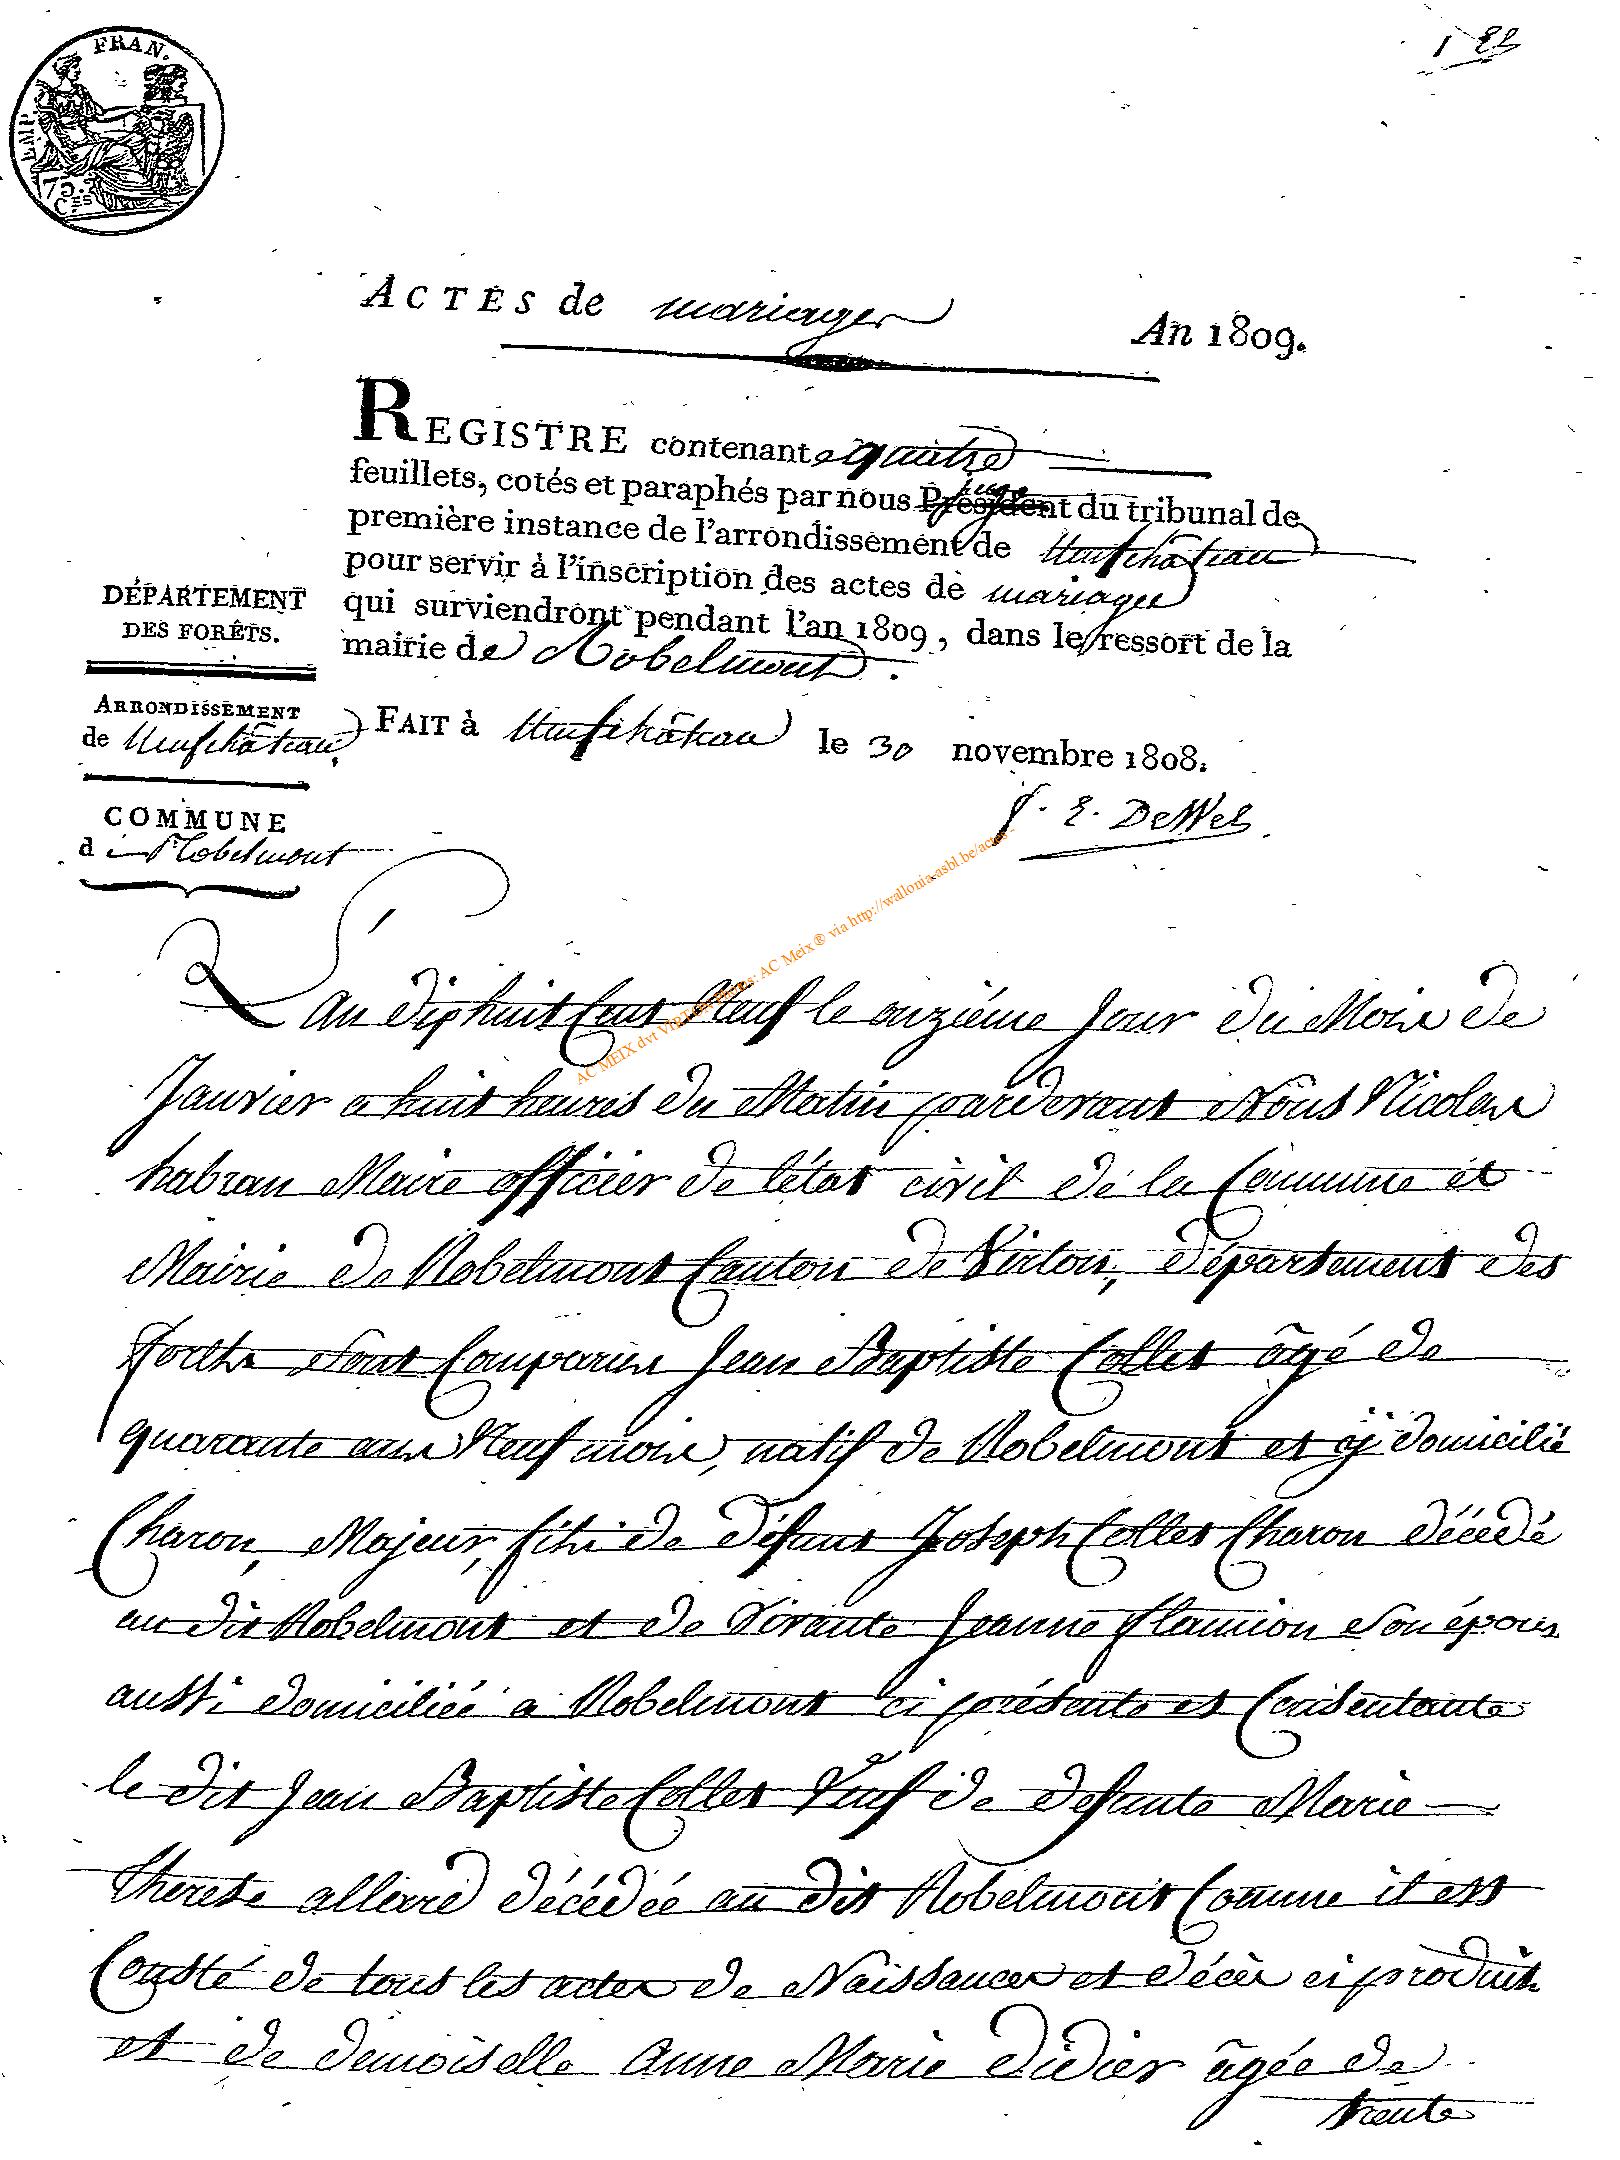 1
EMP. FRAN.
75.
Ces
ACTES de mariages
An 1809.
REGISTRE contenant quatre
feuillets, cotés et paraphés par nous Président juge du tribunal de
première instance de l'arrondissement de Neufchâteau
pour servir à l'inscription des actes de mariages
qui surviendront pendant l'an 1809, dans le ressort de la
mairie de Robelmont.
FAIT à Neufchâteau le 30 novembre 1808.
DÉPARTEMENT
DES FORÊTS.
ARRONDISSEMENT
de Neufchâteau.
COMMUNE
de Robelmont
AC MEIX dvt VIRTON : AC Meix ® via http://wallonia-asbl.be/actes
L'An dixhuit Cent Neuf le onziéme Jour du Mois de
Janvier a huit heures du Matin pardevant Nous Nicolas
habran Maire officier de l'état civil de la Commune et
Mairie de Robelmont Canton de Virton, département des
forêts sont Comparus Jean Baptiste Collet âgé de
quarante ans Neuf mois, natif de Robelmont et ÿ domicilié
Charon, Majeur, fils de défunt Joseph Collet Charon décédé
au dit Robelmont et de Vivante Jeanne flamion son épouse
aussi domiciliée a Robelmont ci présente et Consentante
le dit Jean Baptiste Collet Veuf de defunte Marie
Therese allard décédée au dit Robelmont Comme il est
Consté de tous les actes de Naissances et décès ci produits
et de demoiselle Anne Marie Didier âgée de
trente